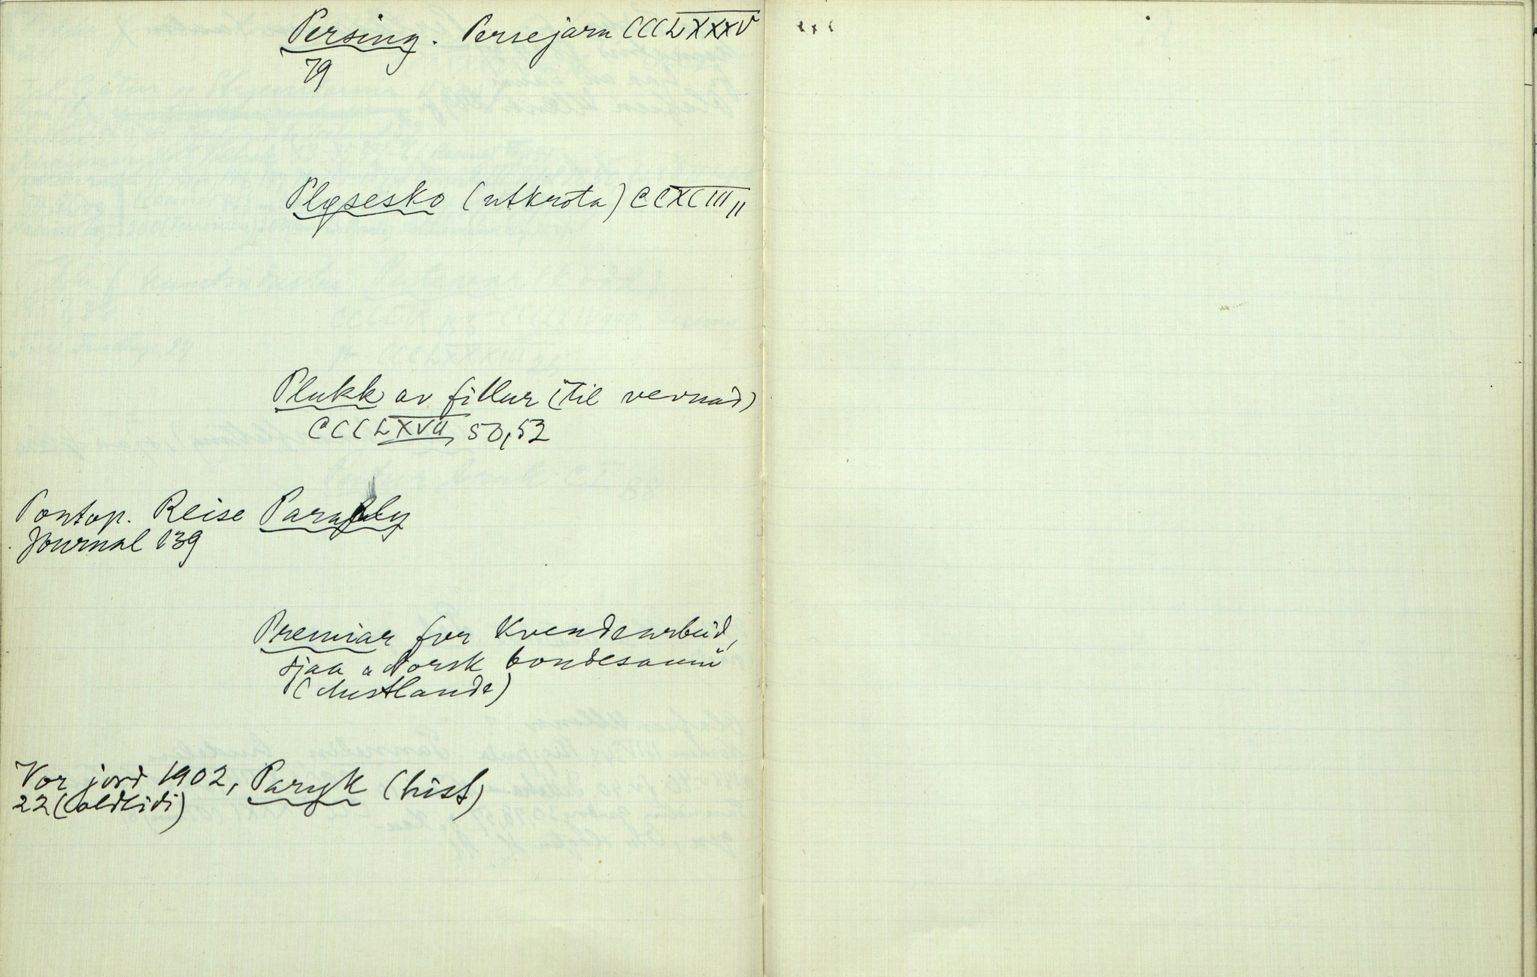 Persing. Persejarn CCCLXXXV
79
Plysesko (utkrota) CCXCIII 11
Plukk av fillur (til vevnad)
CCCLXVII 50,52
Pontop. Reise Paraply
Journal 139
Premiar for Kvendearbeid,
sjaa u Norsk bondesaum
(Austlande)
Vor jord 1902, Paryk (hist)
22 (oldtidi)